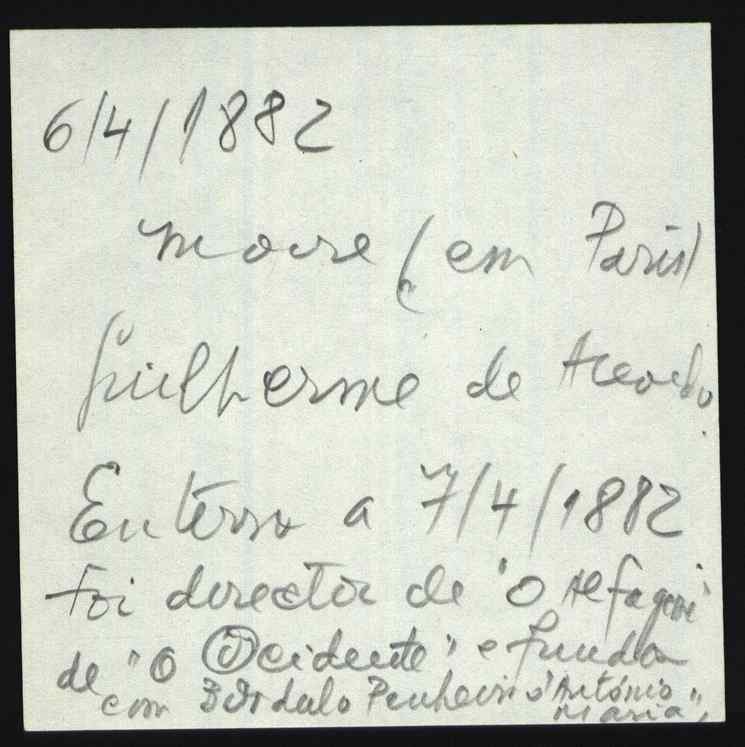 6/4/1882
morre (em Paris)
Guilherme de Azevedo.
Enterro a 7/4/1882
Foi director de "O Alfageme"
de "O Ocidente" e funda
com Bordalo Pinheiro o "António
Maria",